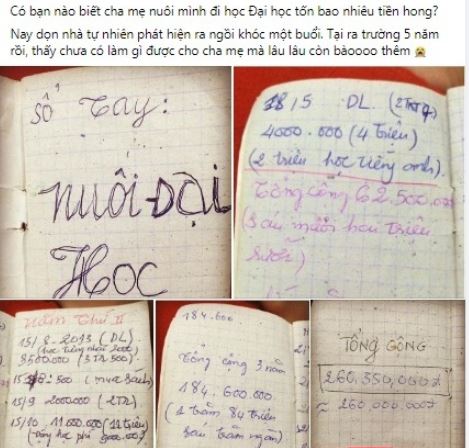 Có bạn nào biết cha mẹ nuôi mình đi học Đại học tốn bao nhiêu tiền hong?
Nay dọn nhà tự nhiên phát hiện ra ngồi khóc một buổi. Tại ra trường 5 năm
rồi, thấy chưa có làm gì được cho cha mẹ mà lâu lâu còn bàoooo thêm 😭
Sổ Tay:
Nuôi Đại
Học
18/5 DL. (2TR7)
4000.000 (4 triệu)
(2 triệu học tiếng anh).
Tổng cộng 62.500.000
(Sáu mươi hai triệu
rưỡi)
Năm thứ II
15/8-2013 (DL)
3500000 (3TR 500)
500 (mua sách)
15/9 2000000 (2TR)
15/10 11.000.000 (11 triệu)
184.600
Tổng cộng 3 năm
184.600.000
(1 trăm 84 triệu
sáu trăm ngàn)
TỔNG CỘNG
260.550,000đ
≈ 260.000.000đ